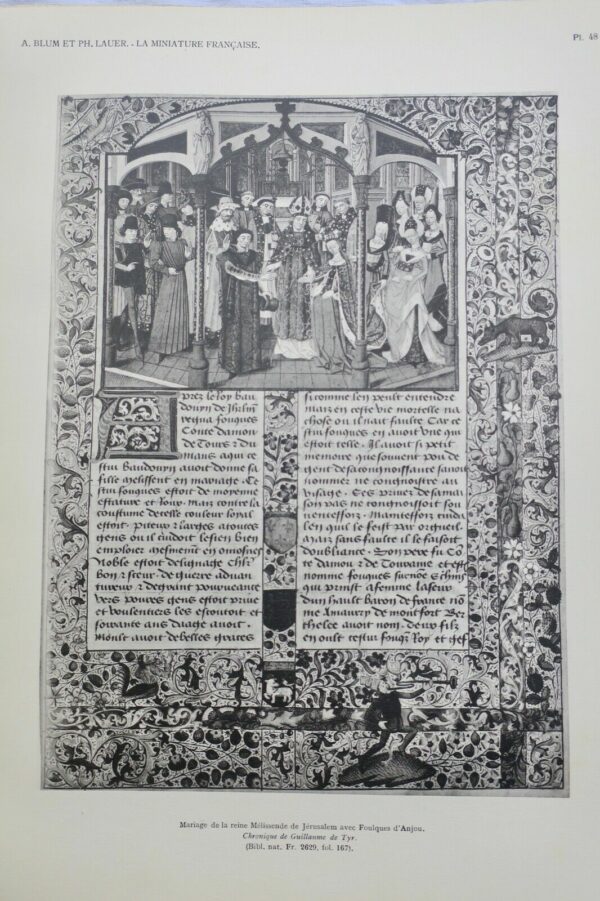 A. BLUM ET PH. LAUER. - LA MINIATURE FRANÇAISE.
Pl. 48
Aprez le Roy bau
douyn de Jhrlm
regna fouques
Conte danjou
de Tours & Du
mans a qui ce
stui baudouyn auoit donne sa
fille melissent en mariage. Ce
stui fouques estoit de moyenne
estature et Rour. maiz contre la
coustume de telle couleur loyal
estoit. Piteux & larges a toutes
gens ou il cuidoit lesien bien
emploier mesmement en omosnes
Noble estoit de lignage Chlr
bon & seur. de guerre aduan
tureux & de grant pourueance
vers pouures gens estoit priue
et voulentiers les escoutoit et
soixante ans daage auoit.
Moult auoit de belles graces
si comme len peult entendre
maiz en ceste vie mortelle na
chose ou il nait faulte. Car ce
stui fouques en auoit vne qui
estoit telle. Il auoit si petit
memoire que souuent pou de
gent de sa congnoissance sauoit
nommer ne congnoistre au
visage. Ces priuez de sa mai
son pas ne congnoissoit sou
uenteffoiz. Mainteffoiz cuida
len quil le feist par orgueil
maiz sans faulte il le faisoit
doubliance. Son pere fu Co
te danjou & de Touraine et est
nomme fouques
qui prinst a femme la seur
dun hault baron de france no
me Amaurry de montfort Ber
thelee auoit nom. deux filz
en oult cestui fouqs Roy et gef
Mariage de la reine Mélissende de Jérusalem avec Foulques d'Anjou.
Chronique de Guillaume de Tyr.
(Bibl. nat. Fr. 2629, fol. 167).